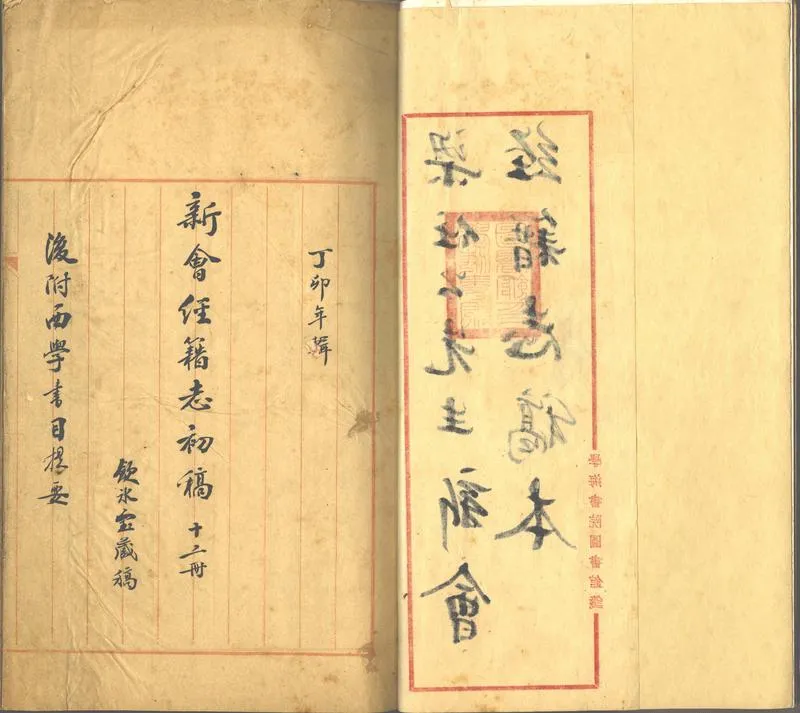 梁任公先生新會
經籍志稿本
學海書院圖書館箋
丁卯年輯
新會經籍志初稿 十二冊
飲冰室藏稿
後附西學書目提要